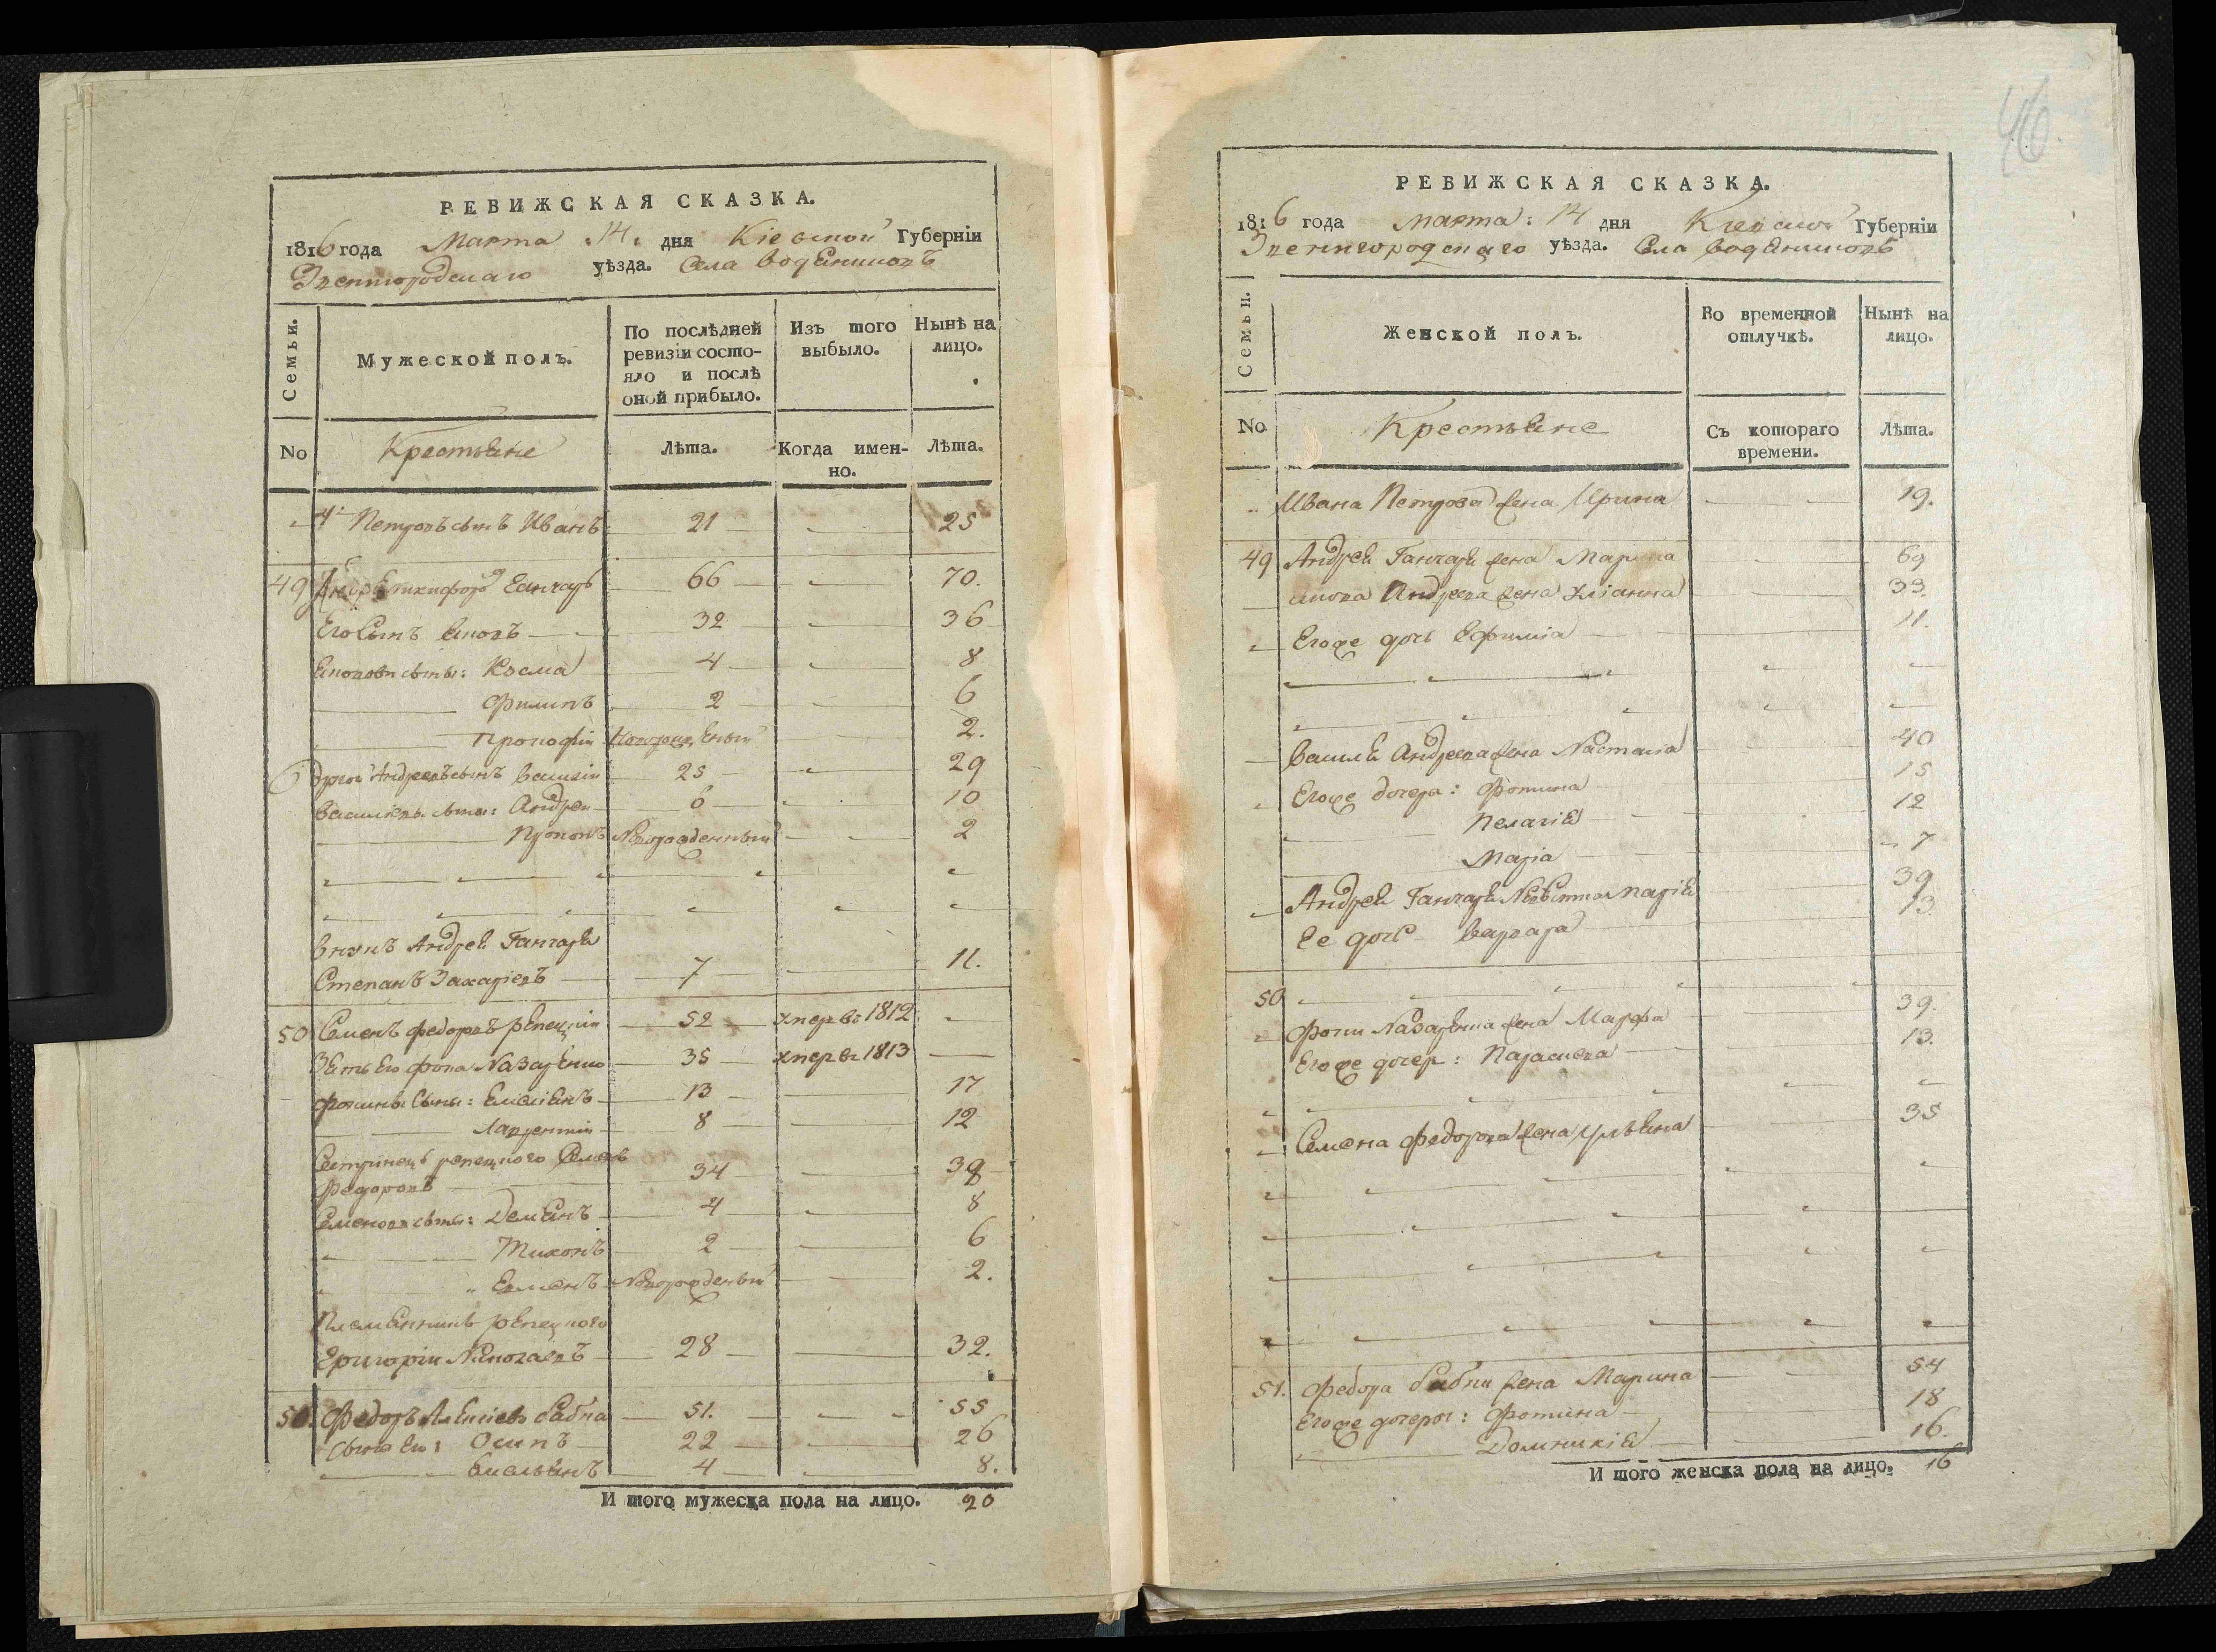 РЕВИЖСКАЯ СКАЗКА.
1816 года Марта 14. дня Кіевской Губерніи
Звенигородскаго уѣзда. Села Водяниковъ
Семьи.
Мужеской полъ.
По послѣдней ревизіи состояло и послѣ оной прибыло.
Изъ того выбыло.
Нынѣ на лицо.
No Крестьяне Лѣта. Когда именно. Лѣта.
4й Петровъ сынъ Иванъ 21 25
49 Ганчаръ 66 70.
Его Сынъ Яковъ 32 36
Яковови сыны: Косма 4 8
Филипъ 2 6
Прокофій Новорожденый 2.
Другой Андреевъ сынъ Василій 25 29
Василіевы сыны: Андрей 6 10
Прокопъ Новорожденный 2
Внукъ Андрея Ганчаря
Степанъ Захаріевъ 7 11.
50 Семенъ Федоровъ Рѣпецкій 52 умеръ въ 1812
Зять Его Фока Назаренко 35 умеръ въ 1813
Фокины Сыны: Емеліянъ 13 17
Лаврентій 8 12
Сестринецъ репецкого Семенъ
Федоровъ 34 38
Семеновы сыны: Демянъ 4 8
Тихонъ 2 6
Новорожденый 2.
Племянникъ рѣпецкого
Григорій Николаевъ 28 32.
51. Федоръ Алексіевъ бабка 51. 55
Сыны Его: Осипъ 22 26
Емельянъ 4 8.
И того мужеска пола на лицо. 20
46.
РЕВИЖСКАЯ СКАЗКА.
1816 года Марта: 14 дня Кіевской Губерніи
Звенигородскаго уѣзда. Села Водяниковъ
Семьи.
Женской полъ.
Во временной отлучкѣ.
Нынѣ на лицо.
No Крестьяне Съ котораго времени. Лѣта.
Ивана Петрова жена Ирина 19.
49 Андрея Ганчаря жена Марина 69
Якова Андреева жена Уліанна 33.
Егоже дочь Ефимія 11.
Василя Андреева жена Настасіа 40
Егоже дочера: Фотина 15
Пелагія 12
Маріа 7
Андрея Ганчаря Невѣстка Марія 39
Ее дочь Варвара 13.
50
Фоки Назаренка жена Марфа 39.
Егоже дочер: Параскева 13.
Семена Федорова жена Ульяна 35
51. Федора бабки жена Марина 54
Егоже дочеры: Фотина 18
Домникія 16.
И того женска пола на лицо. 16